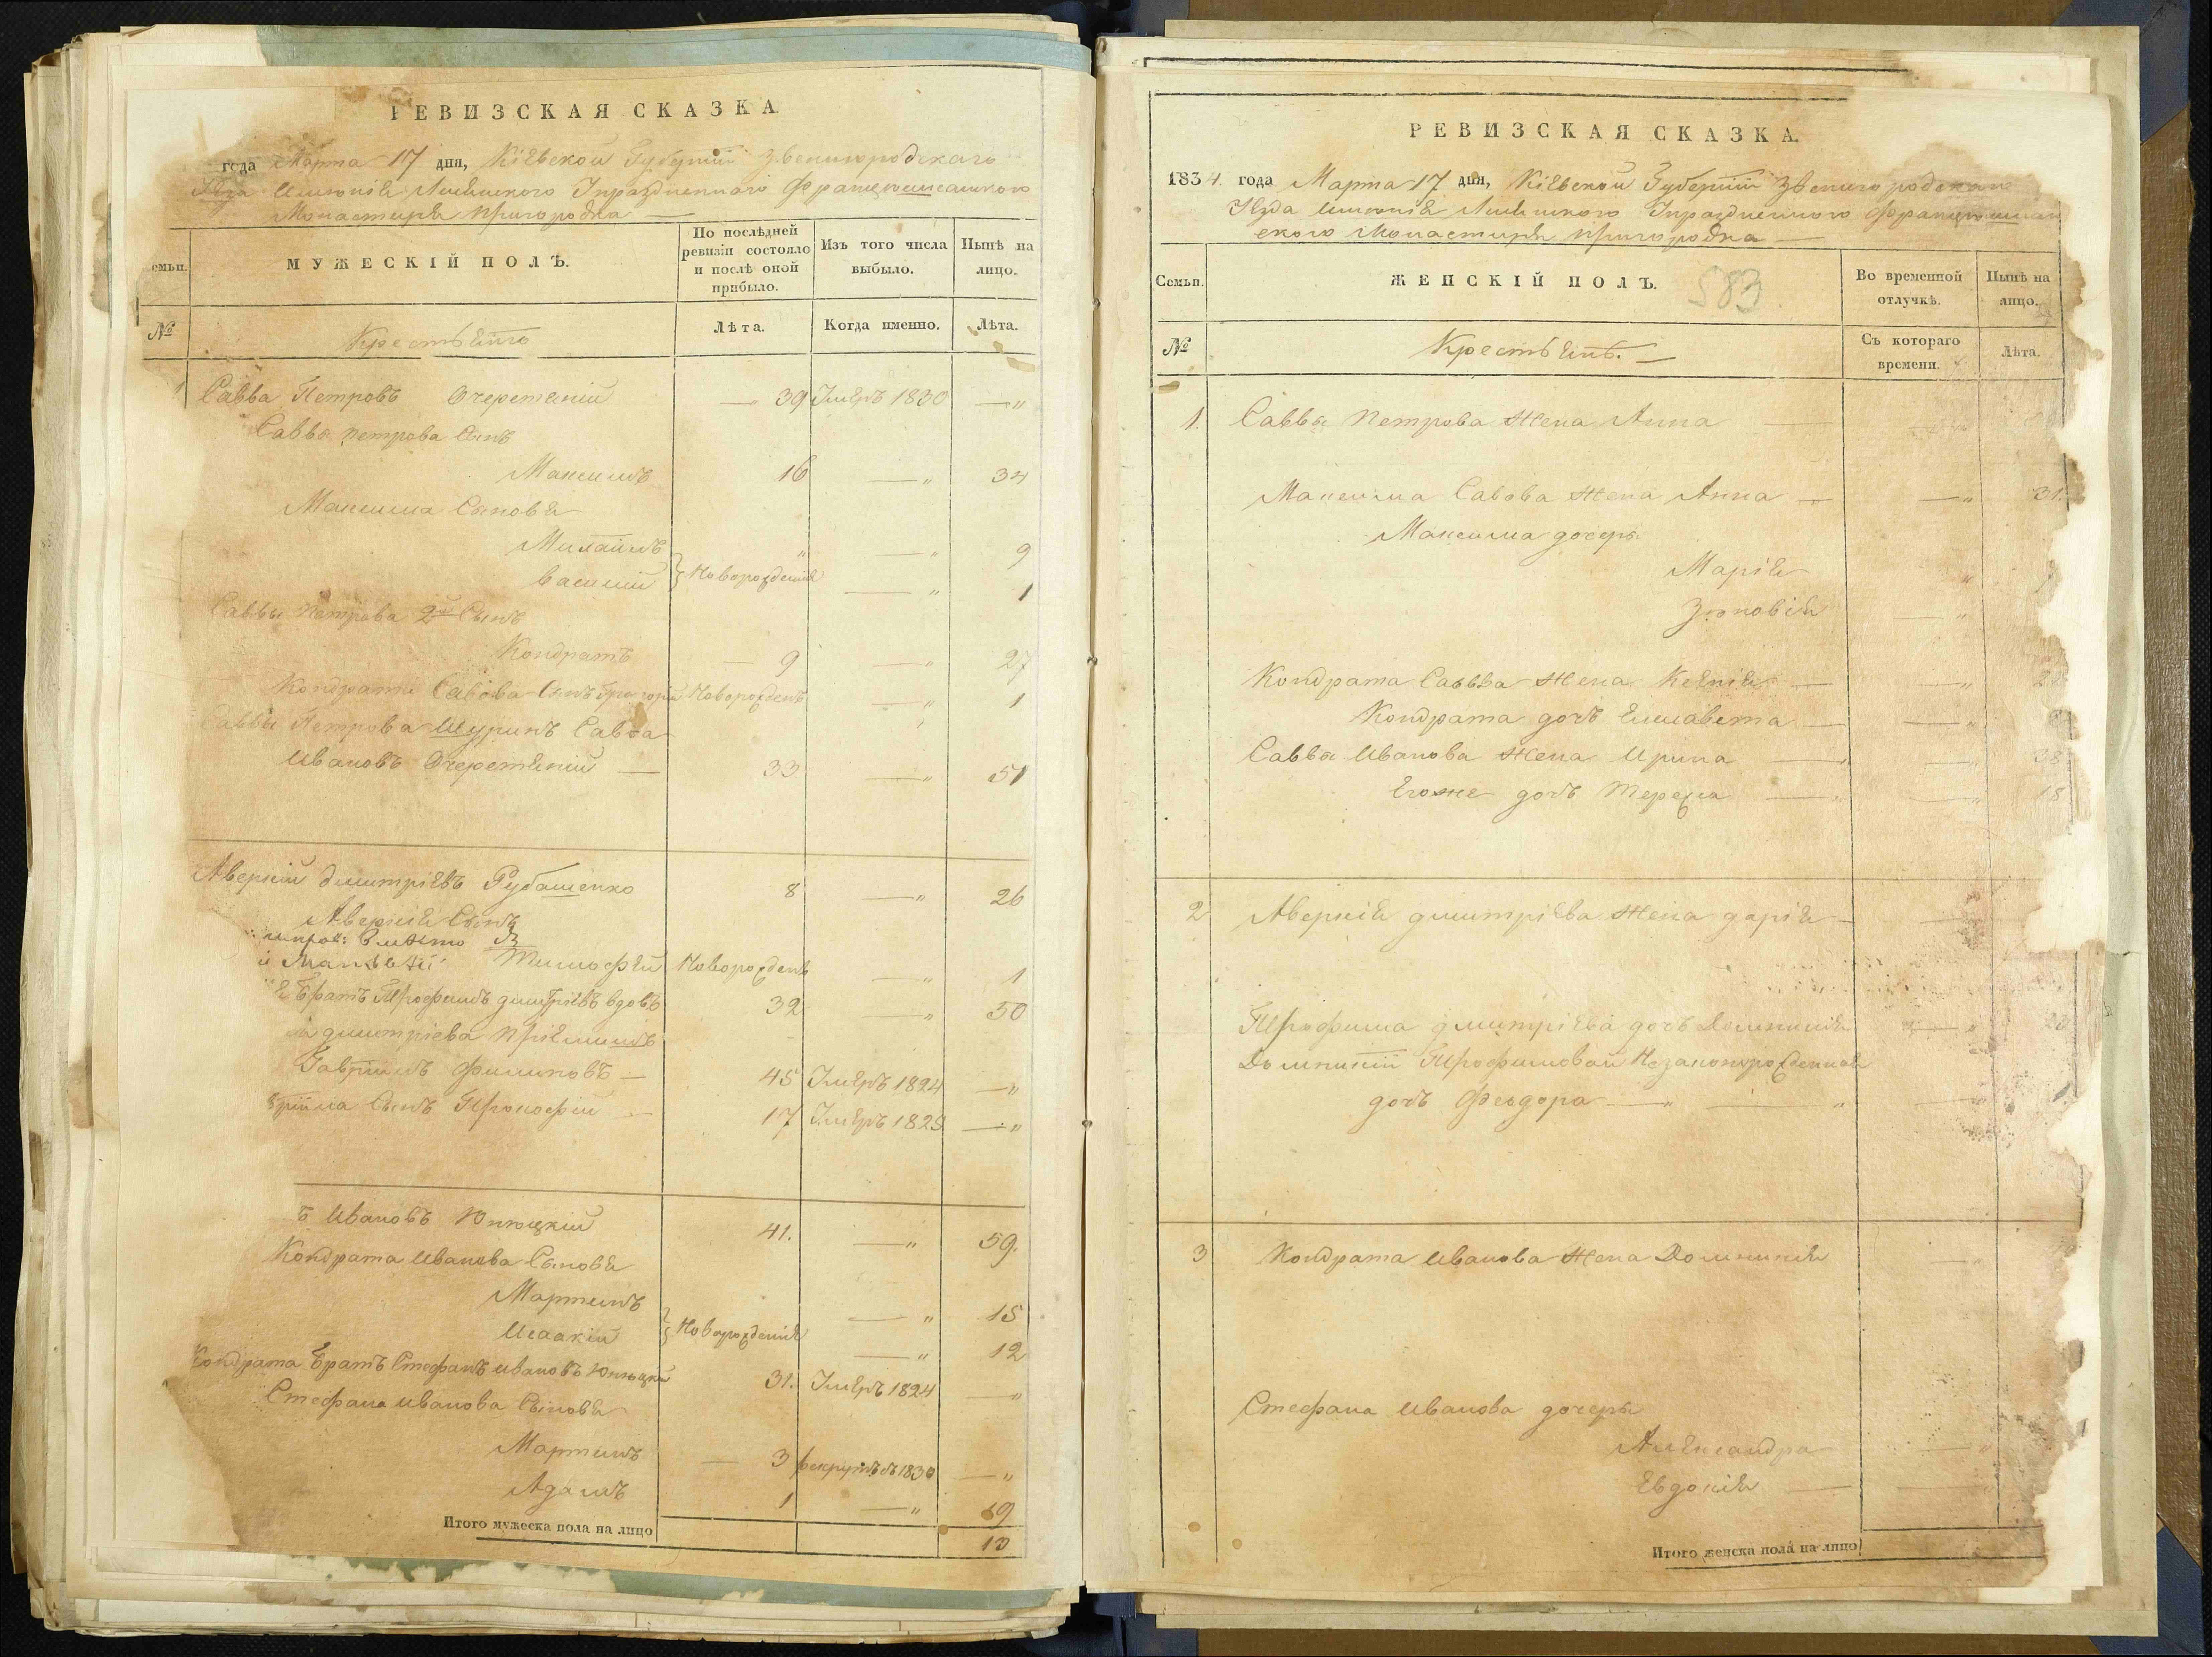 РЕВИЗСКАЯ СКАЗКА
года Марта 17 дня, Кіевской Губерніи Звенигородскаго
Имѣнія Лисянского Упраздненнаго Францишканского
Монастиря Пригородка —
МУЖЕСКІЙ ПОЛЪ.
По послѣдней ревизіи состояло и послѣ оной прибыло.
Изъ того числа выбыло.
Нынѣ на лицо.
№
Лѣта.
Когда именно.
Лѣта.
1 Савва Петровъ Очеретяній — 39 Умеръ 1830 — "
Саввы Петрова Сынъ
Максимъ 16 — " 34
Максима Сыновя
Михайлъ " — " 9
Василій } Новорожденіе — " 1
Саввы Петрова 2й Сынъ
Кондратъ — 9 — " 27
Кондрата Савова Сынъ Григорій Новорожденъ — " 1
Саввы Петрова Шуринъ Савва
Ивановъ Очеретяній — 33 — " 51
Аверкій Димитріевъ Рубашенко 8 — " 26
Аверкія Сынъ
Тимофей Новорожденъ — " 1
Братъ Трофимъ Димитріевъ вдовъ 32 — " 50
Димитріева Пріемишъ
Гавріилъ Филиповъ — 45 Умеръ 1824 — "
Сынъ Прокофій — 17 Умеръ 1829 — "
ъ Ивановъ Юнюцкій 41. — " 59.
Кондрата Иванова Сыновя
Мартинъ — " 15
Исаакій } Новорожденіе — " 12
Кондрата Братъ Стефанъ Ивановъ Юнюцкій 31. Умеръ 1824 — "
Стефана Иванова Сыновя
Мартинъ — 3 рекрутъ въ 1830 — "
Адамъ 1 — " 19
Итого мужеска пола на лицо 10
РЕВИЗСКАЯ СКАЗКА.
1834. года Марта 17 дня, Кіевской Губерніи Звенигородскаго
Уѣзда Имѣнія Лисянского Упраздненного Францишкан
ского Монастиря Пригородка —
Семьи.
ЖЕНСКІЙ ПОЛЪ. 583
Во временной отлучкѣ.
Нынѣ на лицо.
№
Крестьянъ. —
Съ котораго времени.
Лѣта.
1. Саввы Петрова Жена Анна —
Максима Савова Жена Анна — — " 31.
Максима дочеры
Марія "
Зѣновія — "
Кондрата Саввва Жена Ксенія — — "
Кондрата дочъ Елисавета — — "
Саввы Иванова Жена Ирина — — " 38
Егоже дочъ Тереза — — " 18
2 Аверкія Димитріева Жена Дарія —
Трофима Димитріева дочъ Домникія — "
Домникіи Трофимовой Незаконорожденная
дочъ Феодора — " — " — " 1.
3 Кондрата Иванова Жена Домникія —
Стефана Иванова дочеры
Александра — "
Евдокія — — "
Итого женска пола на лицо